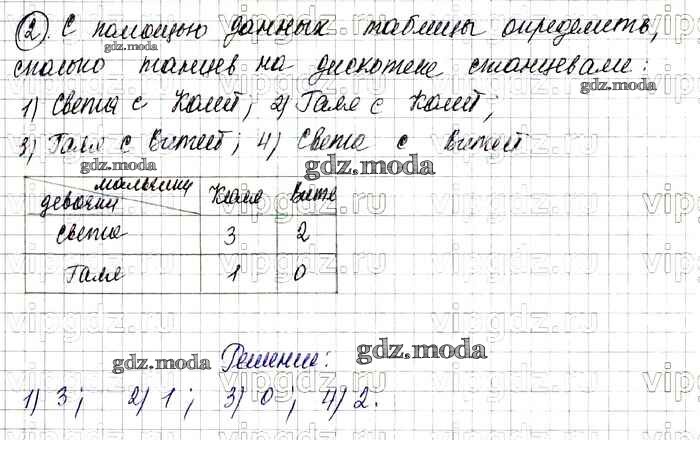 2. С помощью данных таблицы определить,
сколько танцев на дискотеке станцевали:
1) Света с Колей; 2) Галя с Колей;
3) Галя с Витей; 4) Света с Витей
мальчики Коля Витя
девочки
Света 3 2
Галя 1 0
Решение:
1) 3; 2) 1; 3) 0; 4) 2.
gdz.moda
gdz.moda
gdz.moda
gdz.moda
gdz.moda
gdz.moda
gdz.moda
vipgdz.ru